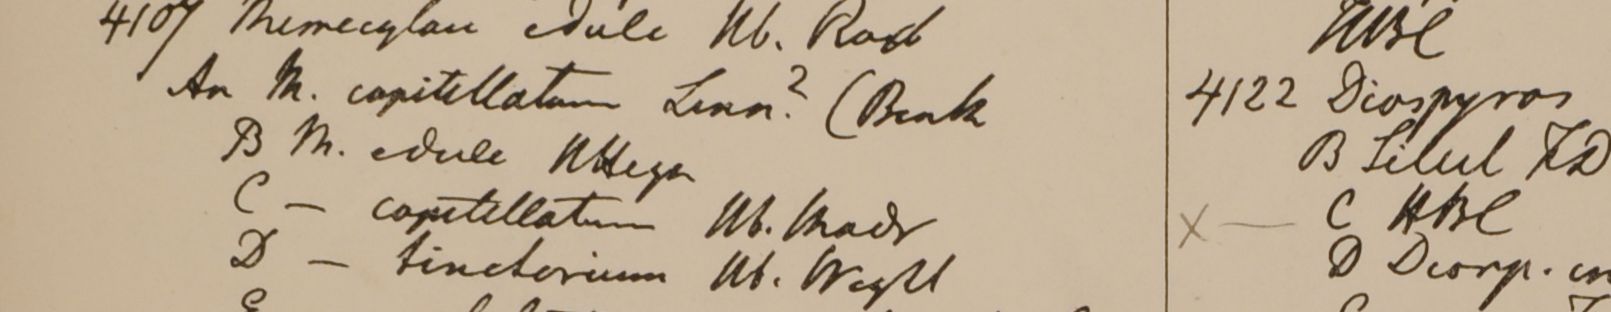 4107 Memecylon edule Hb. Roxb
An M. capitellatum Linn? (Bank
B M. edule HHeyn
C – capitellatum Hb. Madr
D – tinctorium Hb. Wight
E
HBC
4122 Diospyros
B Silul FD
X — C HBC
D Diosp. in